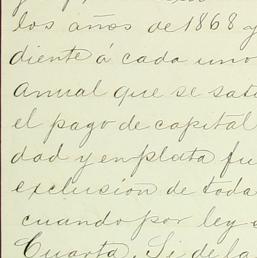 los años de 1868 y
diente á cada uno
anual que se sati
el pago de capital
dad y en plata fu
exclusion de toda
cuando por ley
Cuarta. Si de la